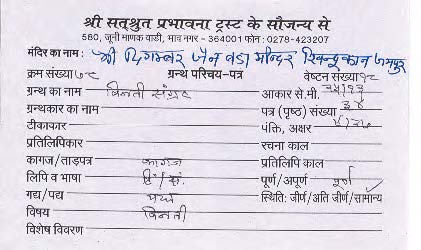 श्री सत्श्रुत प्रभावना ट्रस्ट के सौजन्य से
580, जूनी माणक वाडी, भाव नगर - 364001 फोन : 0278-423207
मंदिर का नाम : श्री दिगम्बर जैन बडा मन्दिर जयपुर
क्रम संख्या ७८ ग्रन्थ परिचय-पत्र वेष्टन संख्या १८
ग्रन्थ का नाम विनती संग्रह आकार से.मी. २५/१३
ग्रन्थकार का नाम पत्र (पृष्ठ) संख्या ३४
टीकाकार पंक्ति, अक्षर
प्रतिलिपिकार रचना काल
कागज/ताड़पत्र कागज प्रतिलिपि काल
लिपि व भाषा हि/सं. पूर्ण/अपूर्ण पूर्ण
गद्य/पद्य पद्य स्थिति: जीर्ण/अति जीर्ण/सामान्य ✓
विषय विनती
विशेष विवरण